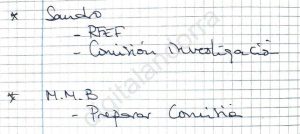 * Sandro
- RFEF
- Comisión investigació
* M.M.B
- Preparar Comisió
digitalandorra